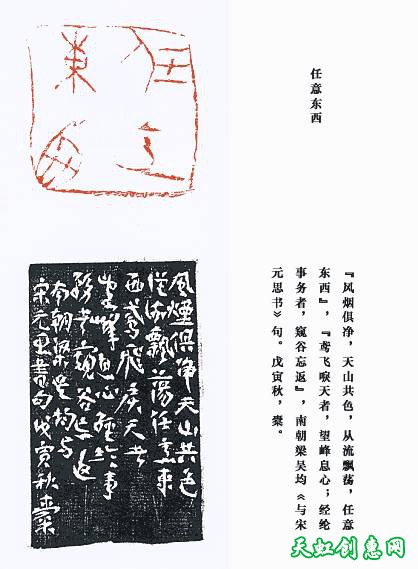 任意
東西
任意东西
『风烟俱净，天山共色，从流飘荡，任意
东西』，『鸢飞唳天者，望峰息心；经纶
事务者，窥谷忘返』，南朝梁吴均《与宋
元思书》句。戊寅秋，橐。
風煙俱净天山共色
從流飄蕩任意東
西鳶飛戾天者
望峰息心經綸事
務者窺谷忘返
南朝梁吳均与
宋元思書句戊寅秋橐
天虹创意网